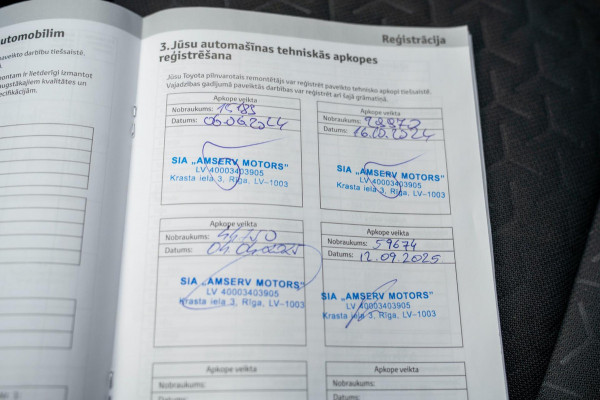 utomobilim
paveikto darbību tiešsaistē.
montam ir lietderīgi izmantot
augstākajiem kvalitātes un
ecifikācijām.
Reģistrācija
3. Jūsu automašīnas tehniskās apkopes
reģistrēšana
Jūsu Toyota pilnvarotais remontētājs var reģistrēt paveikto tehnisko apkopi tiešsaistē.
Vajadzības gadījumā paveiktās darbības var reģistrēt arī šajā grāmatiņā.
Apkope veikta
Nobraukums:
Datums: 06.06.2024
SIA „AMSERV MOTORS"
LV 40003403905
Krasta ielā 3, Rīga, LV-1003
Apkope veikta
Nobraukums:
Datums: 16.10.2024
SIA „AMSERV MOTORS"
LV 40003403905
Krasta ielā 3, Rīga, LV-1003
Apkope veikta
Nobraukums:
Datums: 04.04.2025
SIA „AMSERV MOTORS"
LV 40003403905
Krasta ielā 3, Rīga, LV-1003
Apkope veikta
Nobraukums: 59674
Datums: 12.09.2025
SIA „AMSERV MOTORS"
LV 40003403905
Krasta ielā 3, Rīga, LV-1003
Apkope veikta
Nobraukums:
Datums:
Apkope veikta
Nobraukums:
Datums: